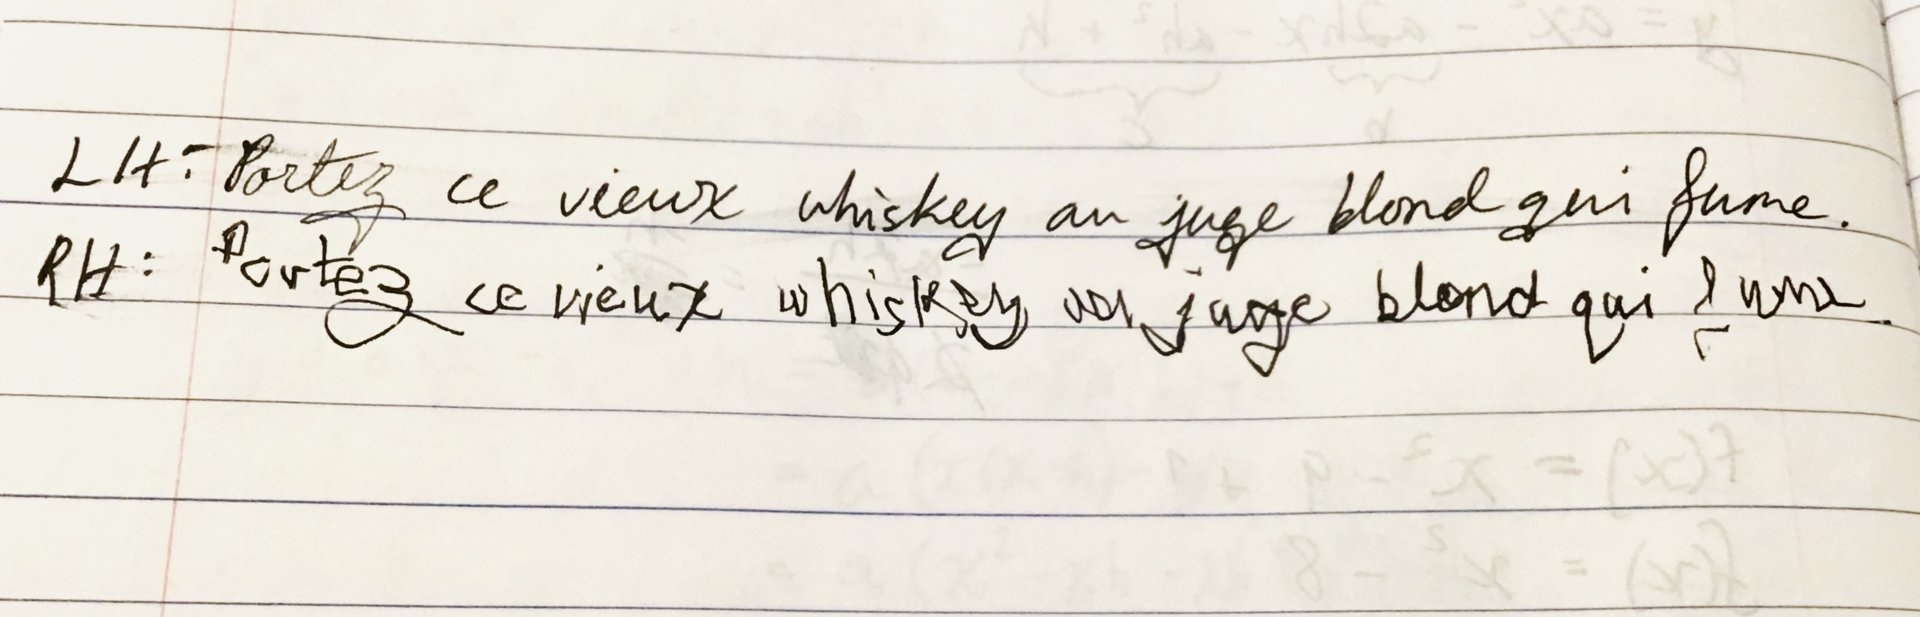 LH: Portez ce vieux whiskey au juge blond qui fume.
RH: Portez ce vieux whiskey au juge blond qui fume.